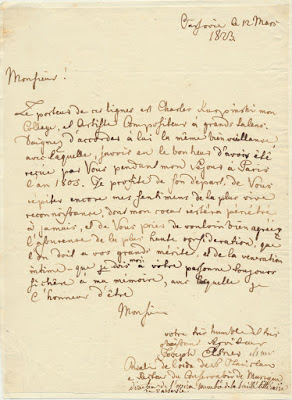 Varsovie le 12 Mars
1823.
Monsieur!
Le porteur de ces lignes est Charles Kurpiński mon
Collegue, et Artiste Compositeur à grands talens.
Daignez d'accorder à lui la même bienveillance,
avec laquelle, j'avois eu le bonheur d'avoir été
reçue par Vous pendant mon séjour à Paris
l'an 1805. Je profite de son départ, de Vous
répéter encore mes sentimens de la plus vive
reconnoissance dont mon coeur restera pénétré
à jamais, et de Vous prier de vouloir bien agréer
l'assurence de la plus haute consideration, que
l'on doit à vos grands mérite, et de la veneration
même que je dois à votre personne toujours
si chère à ma mémoire, avec laquelle j'ai
l'honneur d'être
Monsieur
votre très humble et très
Serviteur
Joseph Elsner
de l'orde de St Stanislas
du Conservatoire de Musique